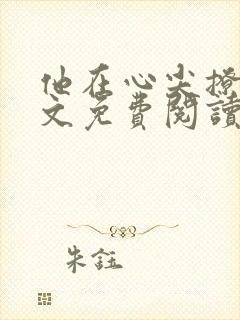 他在心尖撩
文免費閱讀
朱鈺